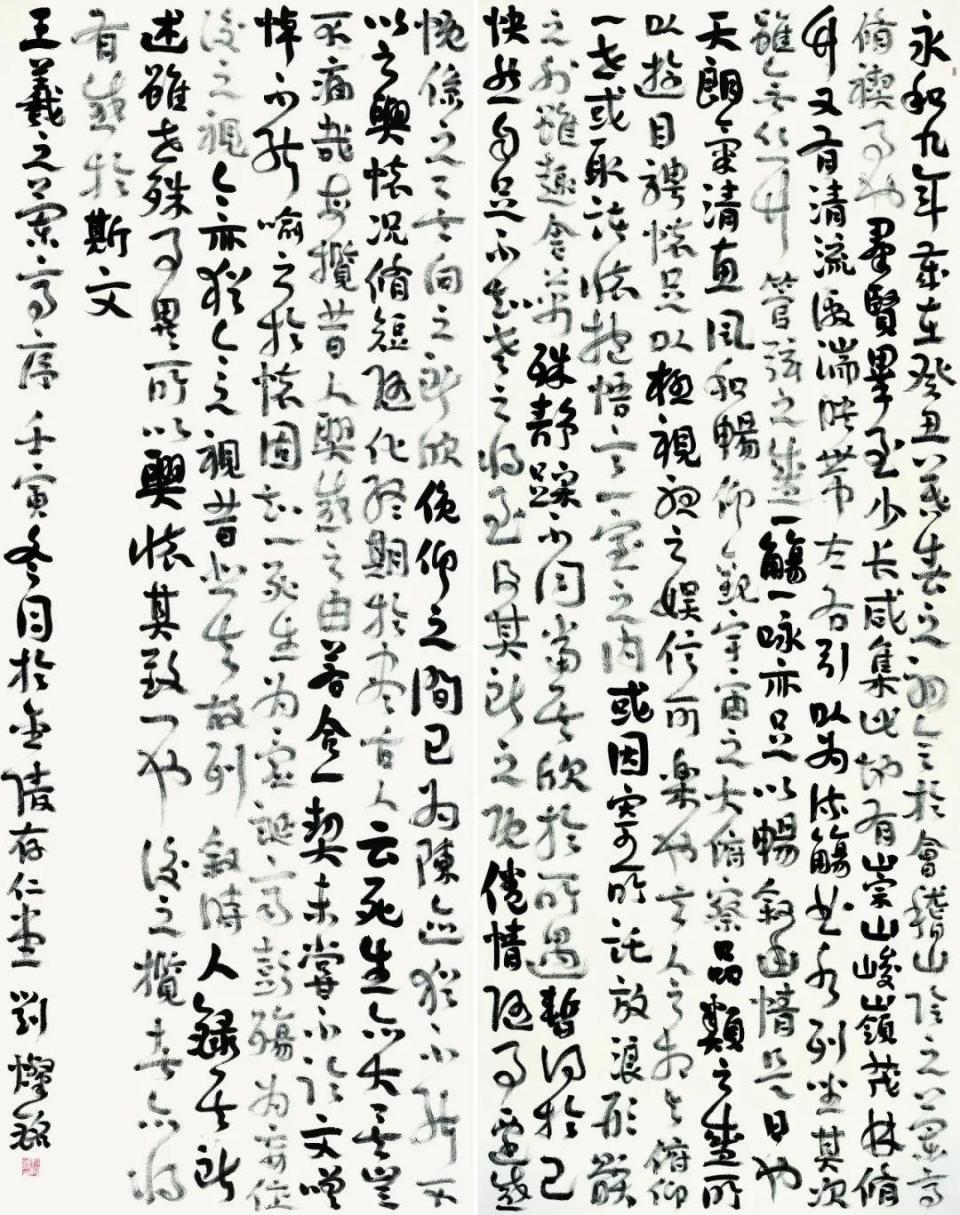 永和九年歲在癸丑暮春之初會於會稽山陰之蘭亭
脩禊事也羣賢畢至少長咸集此地有崇山峻嶺茂林脩
竹又有清流激湍暎帶左右引以為流觴曲水列坐其次
雖無絲竹管弦之盛一觴一詠亦足以暢敘幽情是日也
天朗氣清惠風和暢仰觀宇宙之大俯察品類之盛所
以遊目騁懷足以極視聽之娛信可樂也夫人之相與俯仰
一世或取諸懷抱悟言一室之內或因寄所託放浪形骸
之外雖趣舍萬殊靜躁不同當其欣於所遇暫得於己
快然自足不知老之將至及其所之既倦情隨事遷感
慨係之矣向之所欣俛仰之間已為陳迹猶不能不
以之興懷況脩短隨化終期於盡古人云死生亦大矣豈
不痛哉每攬昔人興感之由若合一契未嘗不臨文嗟
悼不能喻之於懷固知一死生為虛誕齊彭殤為妄作
後之視今亦猶今之視昔悲夫故列敘時人錄其所
述雖世殊事異所以興懷其致一也後之攬者亦將
有感於斯文
王羲之蘭亭序壬寅冬月於金陵存仁堂劉燦銘